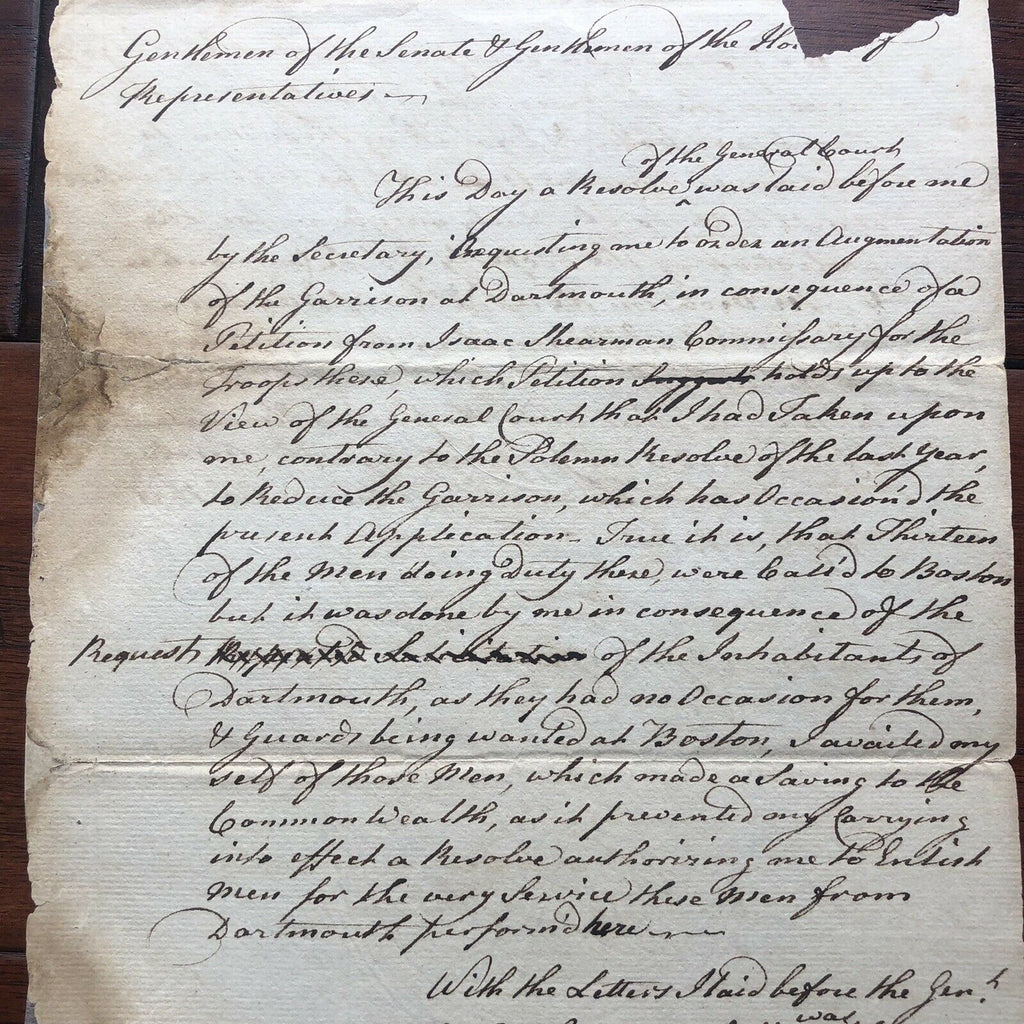 Gentlemen of the Senate & Gentlemen of the Ho of
Representatives
of the General Court
This Day a Resolve ^ was laid before me
by the Secretary, Requesting me to order an Augmentation
of the Garrison at Dartmouth, in consequence of a
Petition from Isaac Shearman Commissary for the
Troops there, which Petition Suggests holds up to the
View of the General Court that I had Taken upon
me, contrary to the Solemn Resolve of the last Year,
to Reduce the Garrison, which has Occasion'd the
present Application - True it is, that Thirteen
of the Men doing Duty there, were Call'd to Boston
but it was done by me in consequence of the
Request Repeated Solicitation of the Inhabitants of
Dartmouth, as they had no Occasion for them,
& Guards being wanted at Boston, I availed my
self of those Men, which made a Saving to the
CommonWealth, as it prevented my Carrying
into effect a Resolve authorizing me to Enlist
Men for the very Service these Men from
Dartmouth perform'd here
With the Letters I laid before the Genl.
was